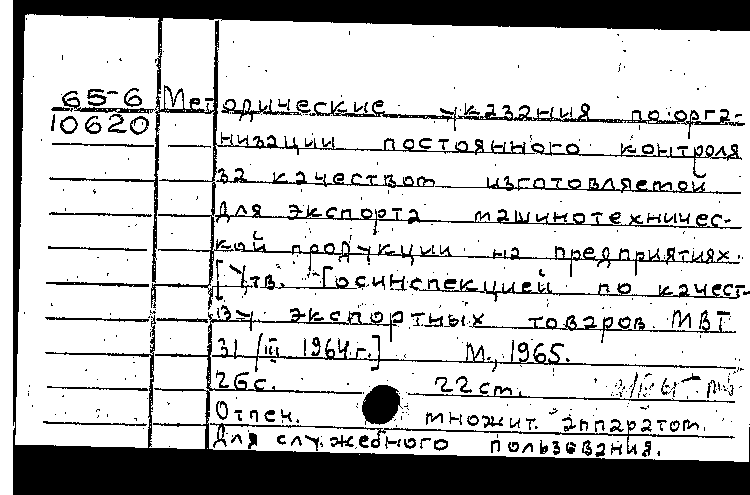 65-6 Методические указания по орга-
10620
низации постоянного контроля
за качеством изготовляемой
для экспорта машинотехничес-
кой продукции на предприятиях.
[Утв. Госинспекцией по качест-
ву экспортных товаров МВТ
31/III 1964г.] М., 1965.
26с. 22 cm.
Отпеч. множит. аппаратом.
Для служебного пользования.